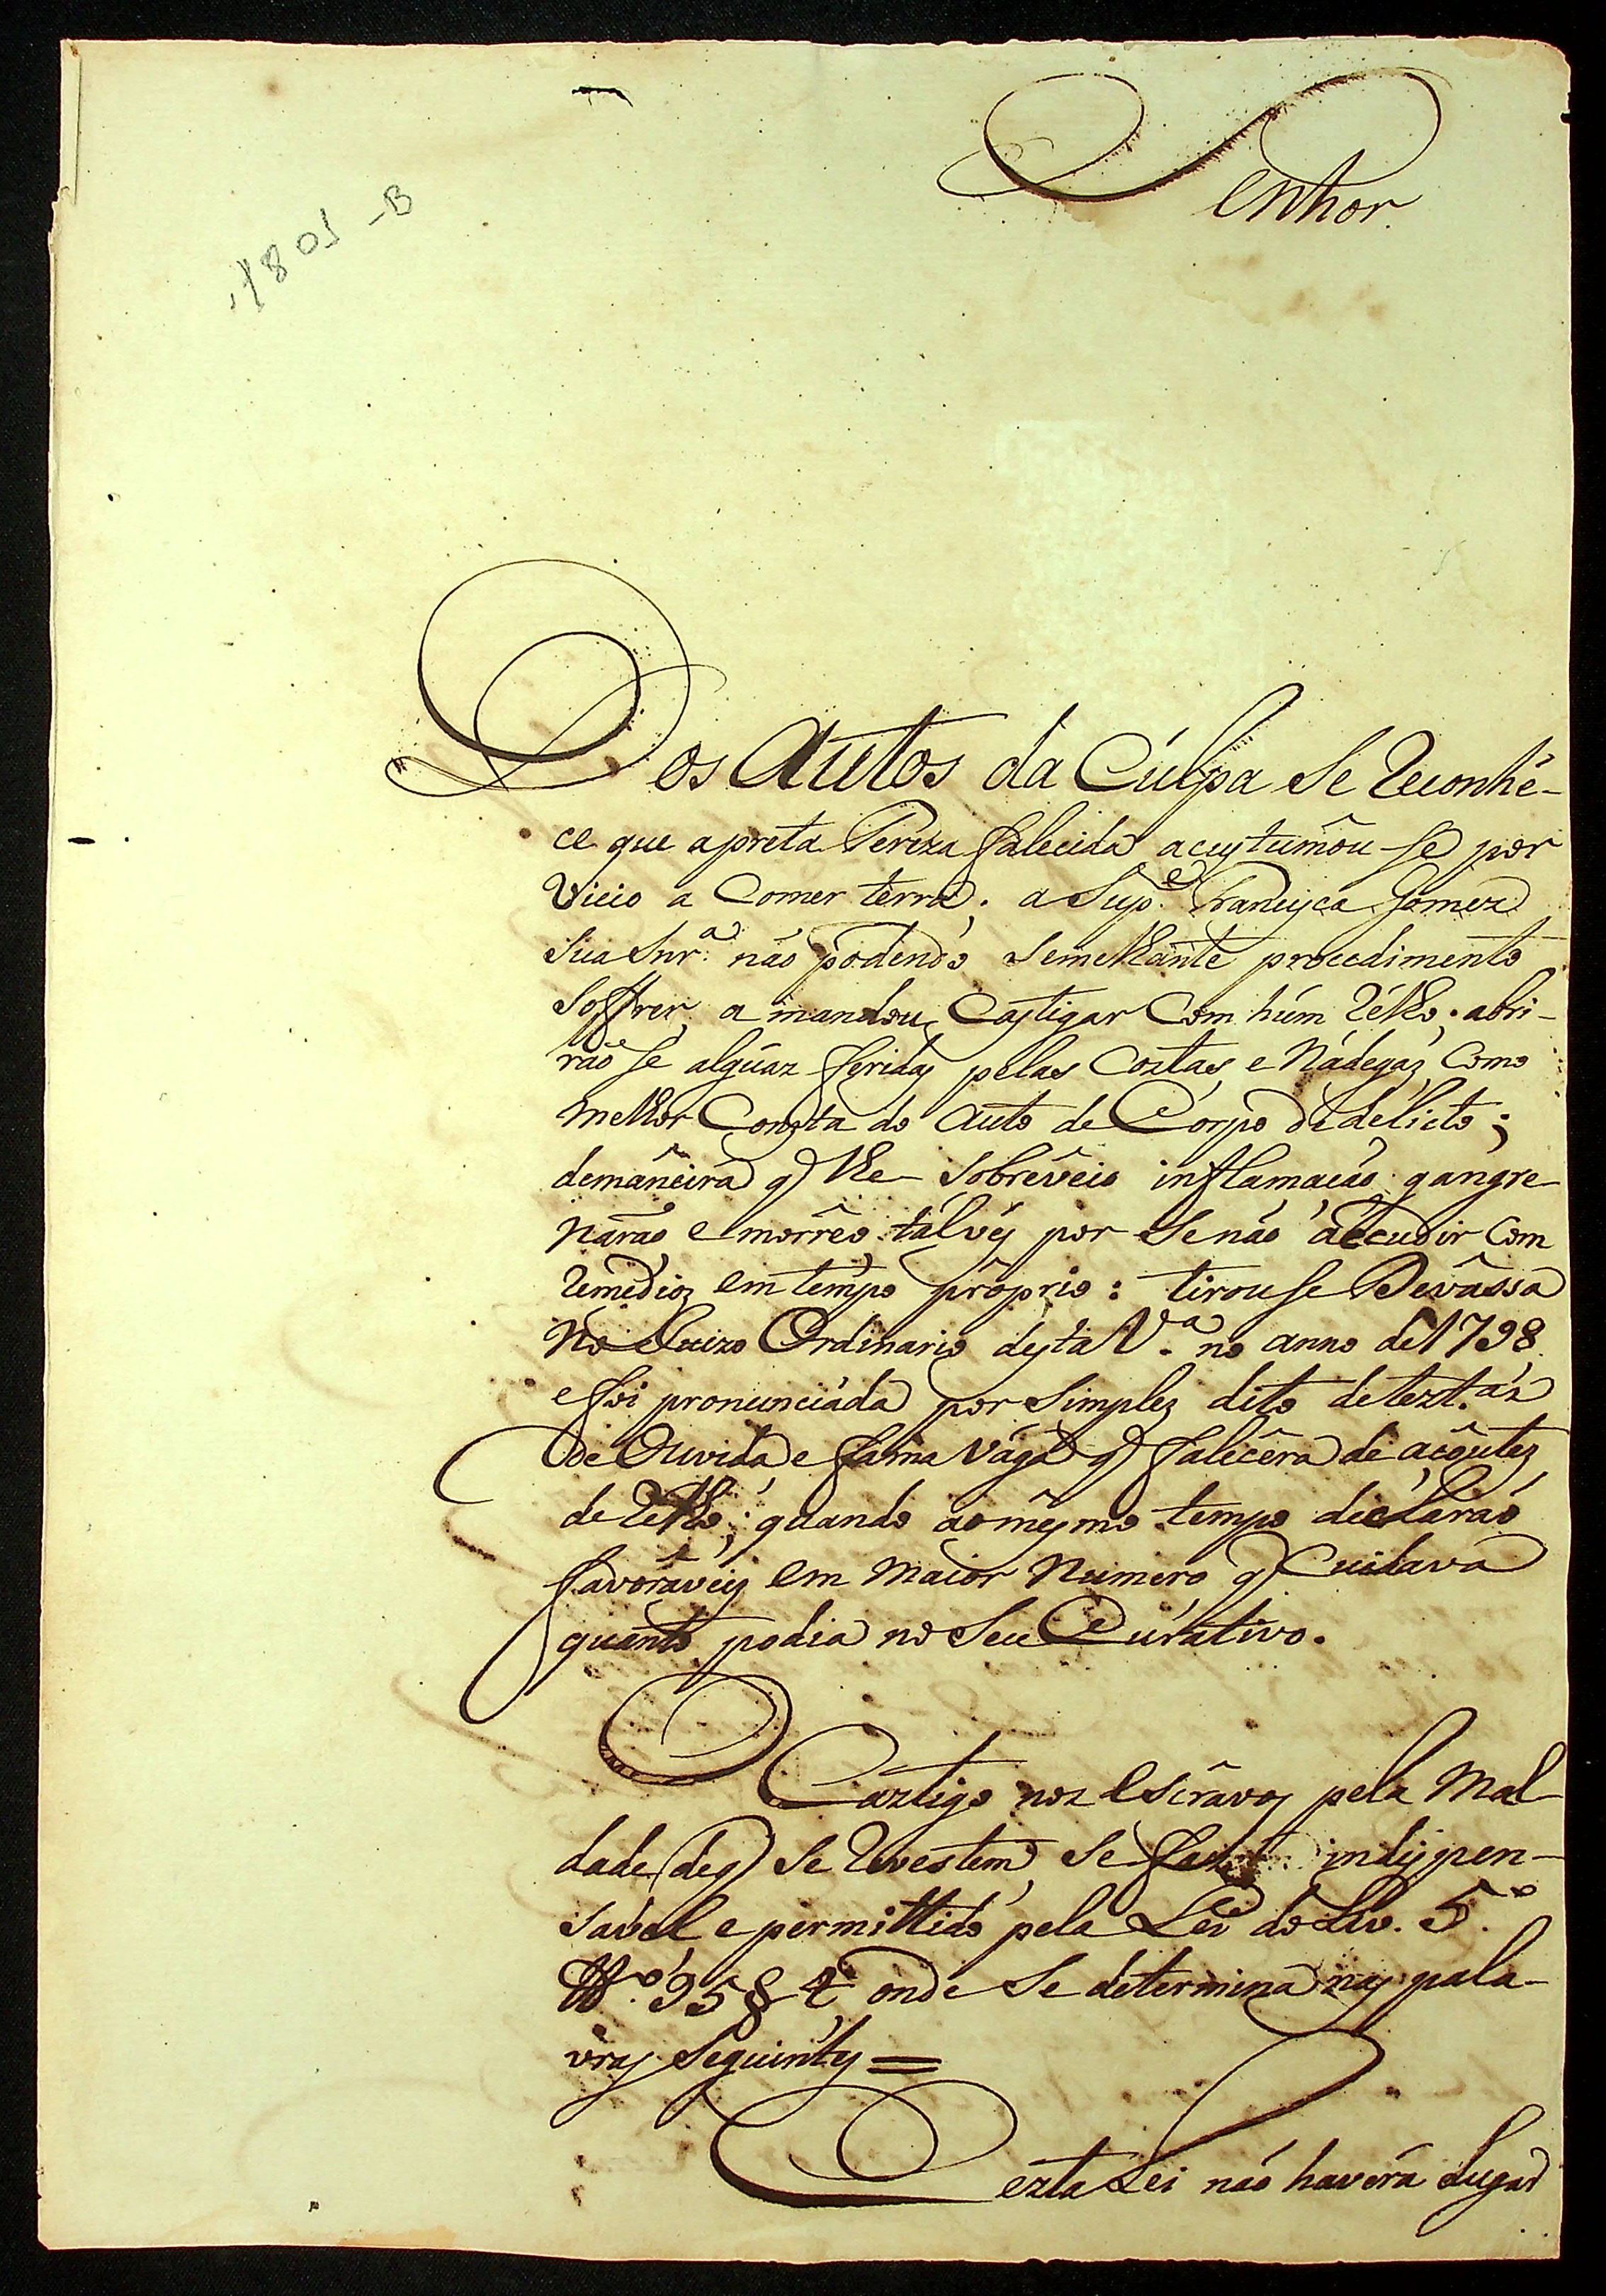 Senhor
1801-B
Dos Autos da Culpa se reconhe-
ce que a preta Tereza falecida acustumou-se por
vicio a comer terra. a Sup.e Francisca Gomez
sua Snr.a não podendo semelhante procedimento
soffrer a mandou castigar com húm relho. abri-
rão se algúaz feridas pelas costas e Nádegaz como
melhor consta do auto de Corpo de delicto;
demaneira q lhe sobreveio inflamacão gangre-
narão e morreo talvéz por se não accudir com
remedioz em tempo próprio: tirouse Devassa
No Juizo Ordinario desta V.a no anno de 1798.
e foi pronunciáda por simplez dito de tezt.az
de Ouvida e fama vága q falicêra de açoutez
de relho; quando ao mesmo tempo declarão
favoráveis em maior Numero q Cuidava
quanto podia no seu Curativo.
O Caztigo noz Escravos pela Mal-
dade de q se revestem, se faz indispen-
savel e permittido pela Lei do Liv. 5.o
tt.o 95 § 4 onde se determina nas pala-
vras seguintes =
E ezta Lei não haverá Lugar